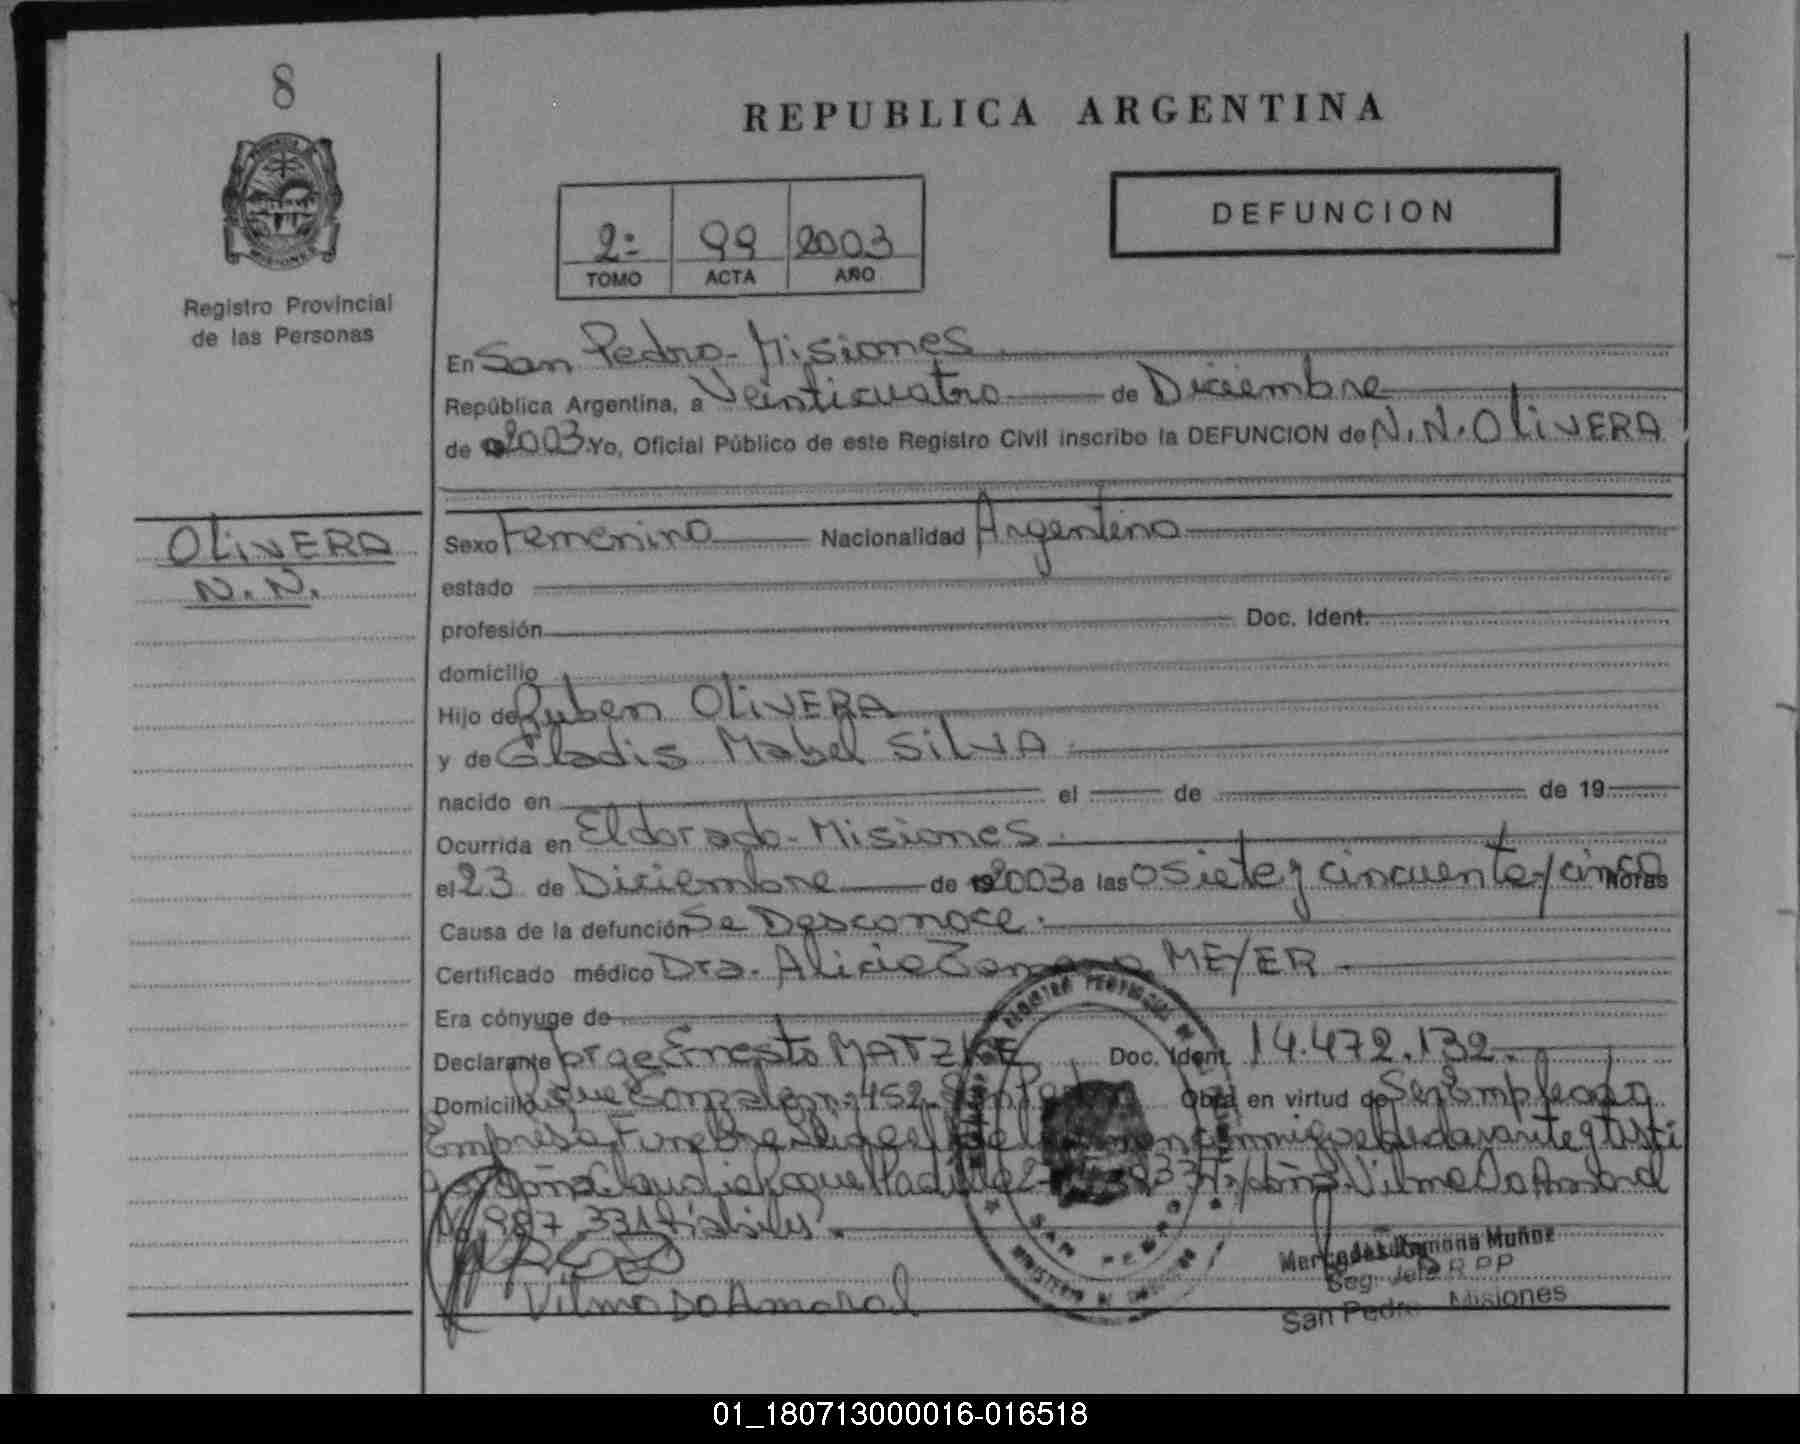 8
REPUBLICA ARGENTINA
DEFUNCION
2º 99 2003
TOMO ACTA AÑO
Registro Provincial
de las Personas
En San Pedro - Misiones
República Argentina, a Veinticuatro de Diciembre
de 2003 Yo, Oficial Público de este Registro Civil inscribo la DEFUNCION de N.N. OLiVERA
OLiVERA
N.N.
Sexo Femenino Nacionalidad Argentina
estado
profesión Doc. Ident.
domicilio
Hijo de Ruben OLiVERA
y de Gladis Mabel SiLVA
nacido en el de de 19
Ocurrida en Eldorado - Misiones
el 23 de Diciembre de 2003 a las 0 siete y cincuenta y cinco horas
Causa de la defunción Se Desconoce.
Certificado médico Dra. Alicia MEYER
Era cónyuge de
Declarante Jorge Ernesto MATZKE Doc. Ident. 14.472.132
Domicilio Roque Gonzalez nº 452 San Pedro Obra en virtud de Ser Empleado
Empresa Funebre declarante y testi
Doña Claudia Raquel Padilla Doña Vilma Do Amaral
987.331
Vilma Do Amaral
Mercedes Ramona Muñoz
Seg. Jefe R.P.P
San Pedro Misiones
01_180713000016-016518